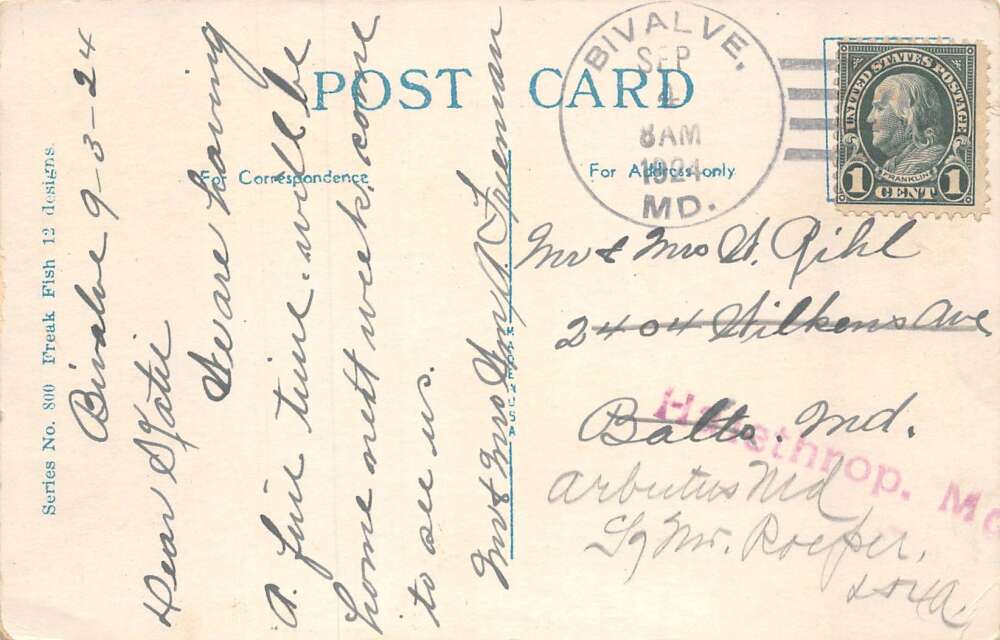 POST CARD
For Correspondence
For Address only
Series No. 800 Freak Fish 12 designs
Bivalve 9-3-24
Dear Katie
We are having
a fine time. will be
home next week, come
to see us.
Mr & Mrs Freeman
MADE IN U S A
BIVALVE,
SEP
4
8AM
1924
MD.
UNITED STATES POSTAGE
FRANKLIN
1 CENT 1
Mr & Mrs W. Rihl
2404 Wilkens Ave
Balto. Md.
Halethrop. Md
Arbutus Md
Mr. Roeper.